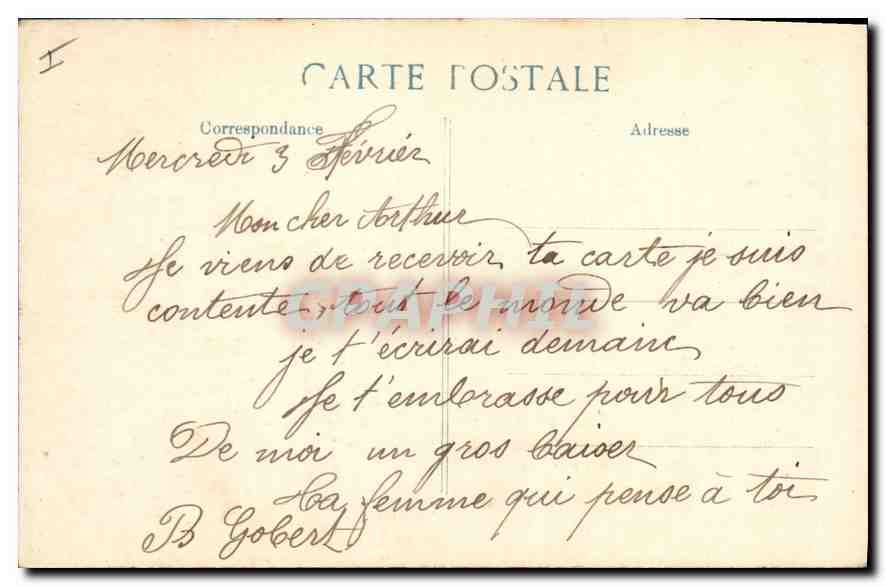 I
CARTE POSTALE
Correspondance
Adresse
Mercredi 3 Février
Mon cher Arthur
Je viens de recevoir ta carte je suis
contente, tout le monde va bien
je t'écrirai demain
Je t'embrasse pour tous
De moi un gros baiser
Ta femme qui pense à toi
B Gobert
CPAPHIL